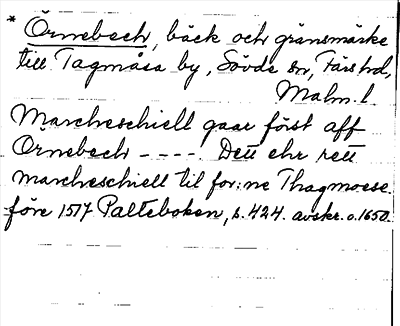 * Örnebech, bäck och gränsmärke
till Tagmåsa by, Sövde sn, Färs hd,
Malm. l.
Marcheschiell gaar först aff
Örnebech ---- Dett ehr rett
marcheschiell til for:ne Thagmoese.
före 1517 Palteboken, s. 424. avskr. o. 1650.